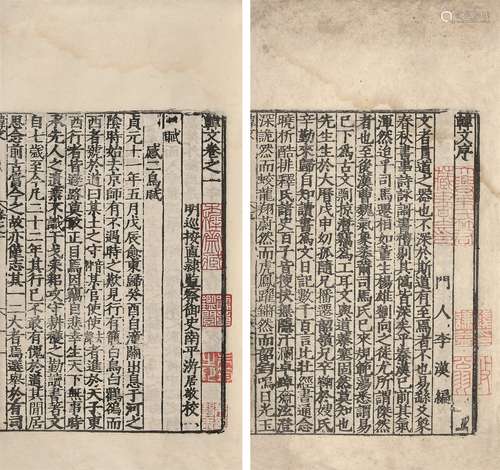 韓文序
門人李漢編
文者貫道之器也不深於斯道有至焉者不也易繇爻象
春秋書事詩詠謌書禮剔其偽皆深矣乎秦漢已前其氣
渾然迨乎司馬遷相如董生楊雄劉向之徒尤所謂傑然
者也至後漢曹魏氣象萎薾司馬氏已來規範蕩悉謂易
已下為古文剽掠潛竊為工耳文與道蓁塞固然莫知也
先生生於大曆戊申幼孤隨兄播遷韶嶺兄卒鞠於嫂氏
辛勤來歸自知讀書為文日記數千百言比壯經書通念
曉析酷排釋氏諸史百子皆搜抉無隱汗瀾卓踔奫泫澄
深詭然而蛟龍翔蔚然而虎鳳躍鏘然而韶鈞鳴日光玉
韓文卷之一
明巡按直隸監察御史南平游居敬校
賦
感二鳥賦
貞元十一年五月戊辰愈東歸癸酉自潼關出息于河之
陰時始去京師有不遇時之歎見行有籠白烏白鸜鵒而
西者號於道曰某土之守某官使使者進於天子東
西行者皆避路莫敢正目焉因竊自悲幸生天下無事時
承先人之遺業不識干戈耒耜攻守耕穫之勤讀書著文
自七歲至今凡二十二年其行已不敢有愧於道其閒居
思念前古當今之故亦僅志其一二大者焉選舉於有司